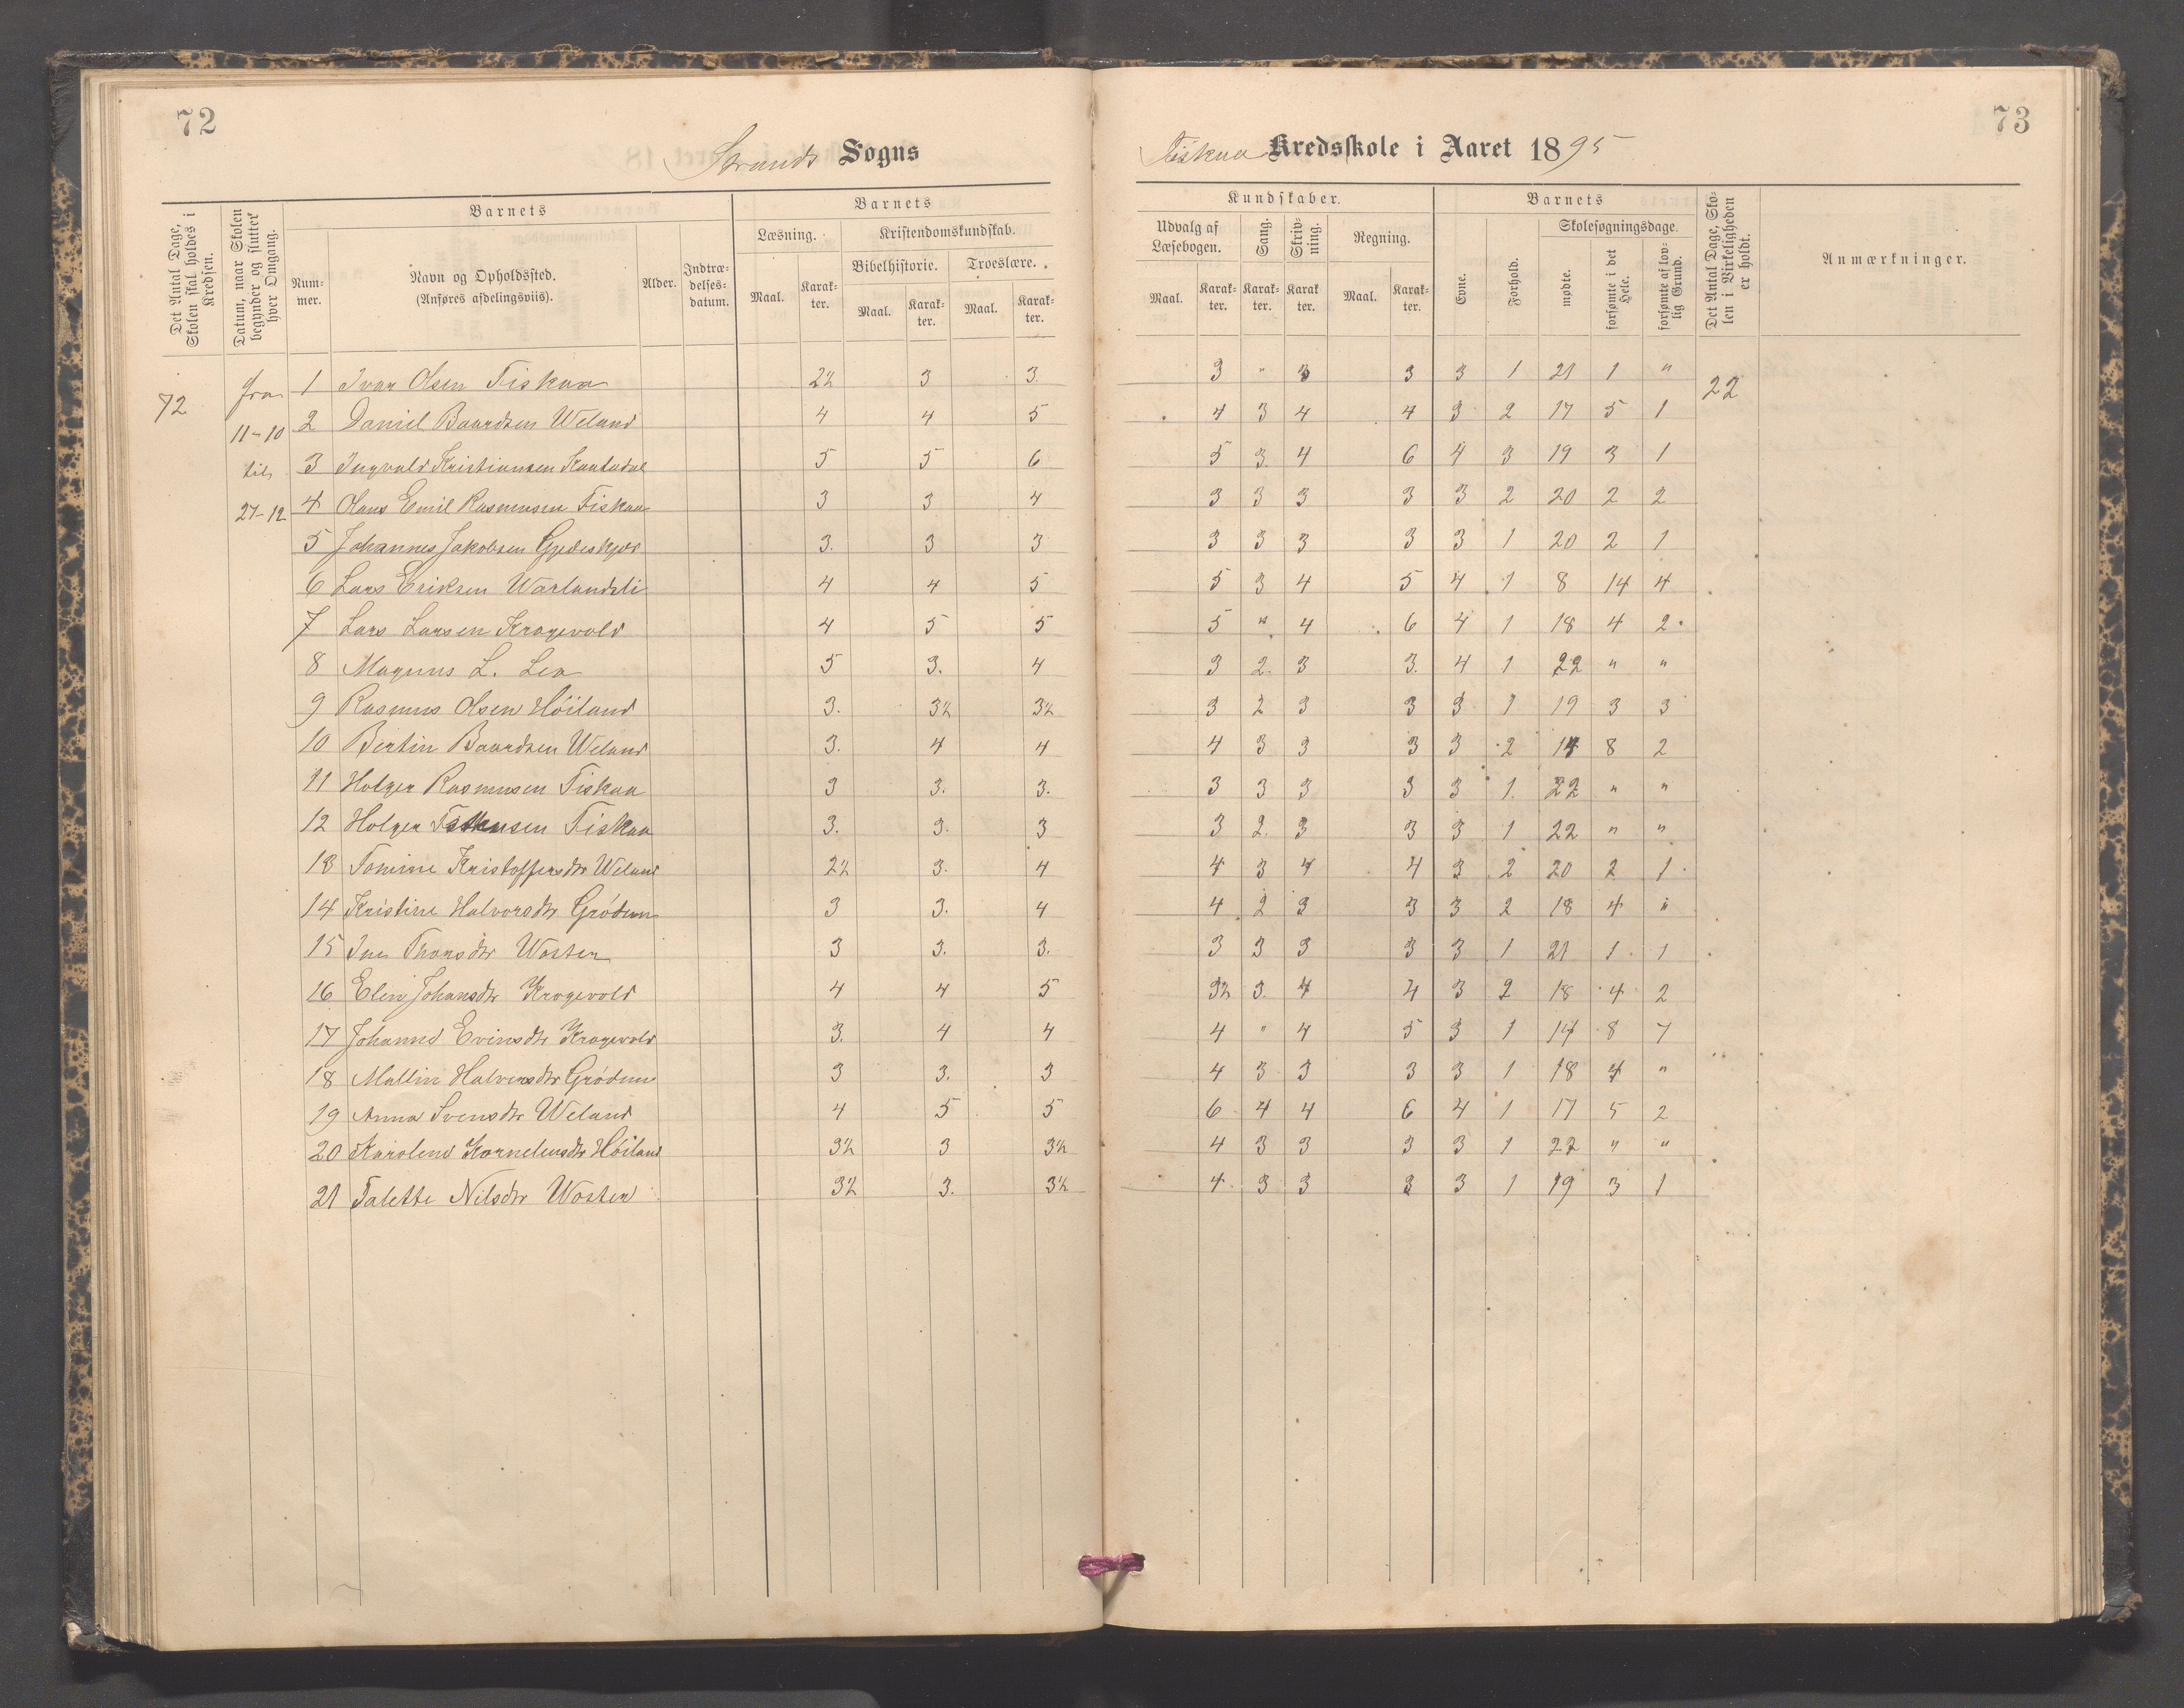 72
73
Strands Sogns
Fiskaa Kredsskole i Aaret 1895
Det Antal Dage, Skolen skal holdes i Kredsen.
Datum, naar Skolen begynder og slutter hver Omgang.
Barnets
Nummer.
Navn og Opholdssted.
(Anføres afdelingsviis).
Alder.
Indtrædelsesdatum.
Barnets
Læsning.
Kristendomskundskab.
Bibelhistorie.
Troeslære.
Maal. Karakter. Maal. Karakter. Maal. Karakter.
Kundskaber.
Udvalg af Læsebogen.
Sang.
Skrivning.
Regning.
Maal. Karakter. Karakter. Karakter Maal. Karakter.
Barnets
Evne.
Forhold.
Skolesøgningsdage.
mødte.
forsømte i det Hele.
forsømte af lovlig Grund.
Det Antal Dage, Skolen i Virkeligheden er holdt.
Anmærkninger.
72
fra
11-10
til
27-12
1 Ivar Olsen Fiskaa 2½ 3 3. 3 " 3 3 3 1 21 1 " 22
2 Daniel Baardsen Weland 4 4 5 4 3 4 4 3 2 17 5 1
3 Ingvald Kristiansen 5 5 6 5 3. 4 6 4 3 19 3 1
4 Olaus Emil Rasmusen Fiskaa 3 3 4 3 3 3 3 3 2 20 2 2
5 Johannes Jakobsen 3. 3 3 3 3 3 3 3 1 20 2 1
6 Lars Eriksen Warlandsli 4 4 5 5 3 4 5 4 1 8 14 4
7 Lars Larsen Krogevold 4 5 5 5 " 4 6 4 1 18 4 2
8 Magnus L. Lea 5 3. 4 3 2. 3 3. 4 1 22 " "
9 Rasmus Olsen Höiland 3. 3½ 3½ 3 2 3 3 3 1 19 3 3
10 Bertin Baardsen Weland 3. 4 4 4 3 3 3 3 2 14 8 2
11 Holger Rasmusen Fiskaa 3 3. 3. 3 3 3 3 3 1 22 " "
12 Holger Fiskaa 3. 3. 3 3 2. 3 3 3 1 22 " "
13 Tomine Kristoffersdtr Weland 2½ 3. 4 4 3 4 4 3 2 20 2 1
14 Kristine Halvorsdtr Grödem 3 3. 4 4 2 3 3 3 2 18 4 "
15 Ine Thorsdtr Wosten 3 3. 3. 3 3 3 3 3 1 21 1 1
16 Elin Johansdtr Krogevold 4 4 5 3½ 3. 4 4 3 2 18 4 2
17 Johanne Evinsdtr Krogevold 3. 4 4 4 " 4 5 3 1 14 8 7
18 Mallin Halvorsdtr Grödem 3 3. 3 4 3 3 3 3 1 18 4 "
19 Anna Svensdtr Weland 4 5 5 6 4 4 6 4 1 17 5 2
20 Karoline Korneliusdtr Höiland 3½ 3 3½ 4 3 3 3 3 1 22 " "
21 Talette Nilsdtr Wosten 3½ 3. 3½ 4 3 3 3 3 1 19 3 1